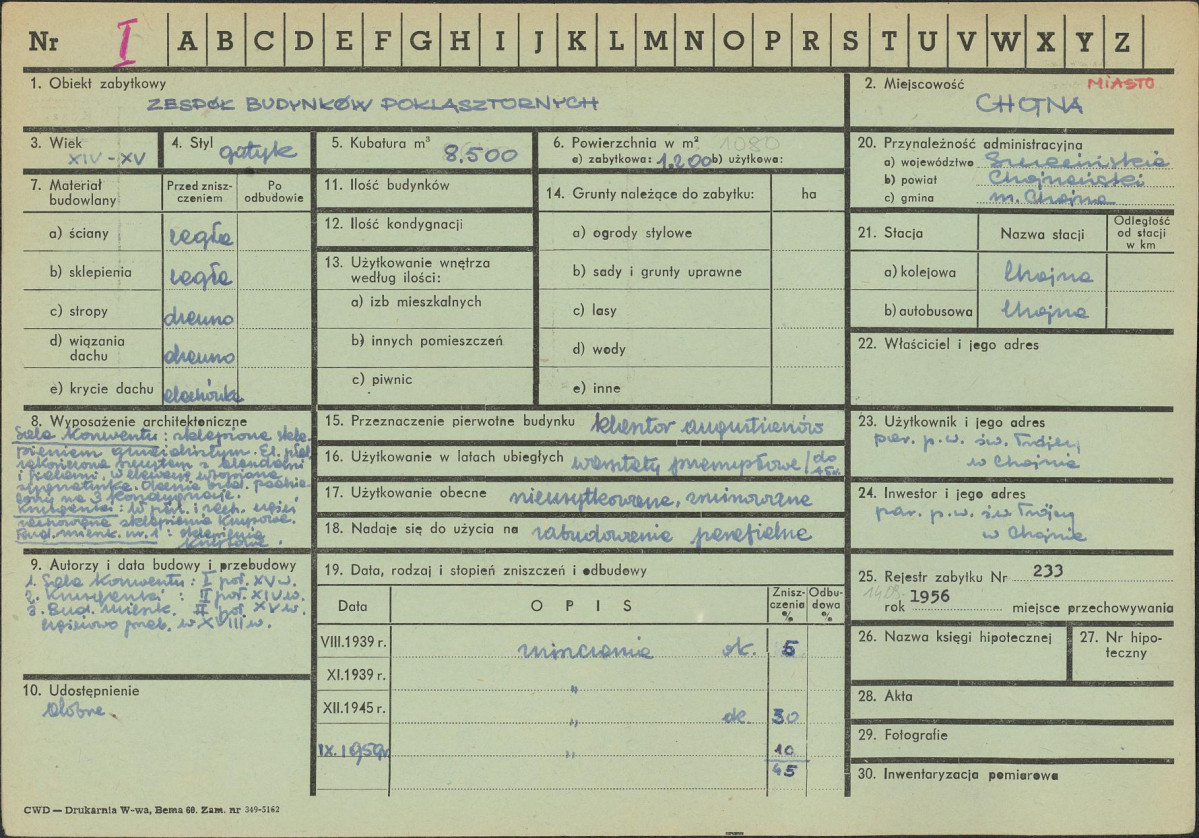 Nr I A B C D E F G H I J K L M N O P R S T U V W X Y Z
1. Obiekt zabytkowy
ZESPÓŁ BUDYNKÓW POKLASZTORNYCH
2. Miejscowość MIASTO
CHOJNA
3. Wiek
XIV - XV
4. Styl gotyk
5. Kubatura m³
8.500
6. Powierzchnia w m² 1080
a) zabytkowa: 1.200 b) użytkowa:
20. Przynależność administracyjna
a) województwo Szczecińskie
b) powiat Chojnański
c) gmina m. Chojna
7. Materiał budowlany
Przed zniszczeniem
Po odbudowie
a) ściany cegła
b) sklepienia cegła
c) stropy drewno
d) wiązania dachu drewno
e) krycie dachu dachówka
11. Ilość budynków
12. Ilość kondygnacji
13. Użytkowanie wnętrza
według ilości:
a) izb mieszkalnych
b) innych pomieszczeń
c) piwnic
14. Grunty należące do zabytku: ha
a) ogrody stylowe
b) sady i grunty uprawne
c) lasy
d) wody
e) inne
21. Stacja
Nazwa stacji
Odległość
od stacji
w km
a) kolejowa Chojna
b) autobusowa Chojna
22. Właściciel i jego adres
8. Wyposażenie architektoniczne
Sala Konwentu: sklepiona skle-
pieniem gwiaździstym. El. płd.
zakończona szczytem z blendami
i
sygnaturka.
na 3 kondygnacje.
i zach. części
zachowane sklepienia krzyżowe.
Bud. mieszk. nr. 1: sklepienia
krzyżowe.
15. Przeznaczenie pierwotne budynku klasztor augustianów
16. Użytkowanie w latach ubiegłych warsztaty przemysłowe /do 45r.
17. Użytkowanie obecne nieużytkowane, zrujnowane
18. Nadaje się do użycia na zabudowania parafialne
23. Użytkownik i jego adres
par. p.w. św. Trójcy
w Chojnie
24. Inwestor i jego adres
par. p.w. św Trójcy
w Chojnie
9. Autorzy i data budowy i przebudowy
1. Sala Konwentu: I poł. XV w.
2. Krużganki: II poł. XIV w.
3. Bud. mieszk. II poł. XV w.
częściowo przeb. w XVIII w.
10. Udostępnienie
dobre
19. Data, rodzaj i stopień zniszczeń i odbudowy
Data
O P I S
Znisz-
czenia
%
Odbu-
dowa
%
VIII.1939 r. zniszczenia ok. 5
XI.1939 r. "
XII.1945 r. " ok. 30
IX. 1959r " 10
45
25. Rejestr zabytku Nr 233
rok 1956 miejsce przechowywania
26. Nazwa księgi hipotecznej
27. Nr hipo-
teczny
28. Akta
29. Fotografie
30. Inwentaryzacja pomiarowa
CWD — Drukarnia W-wa, Bema 60. Zam. nr 349-5162